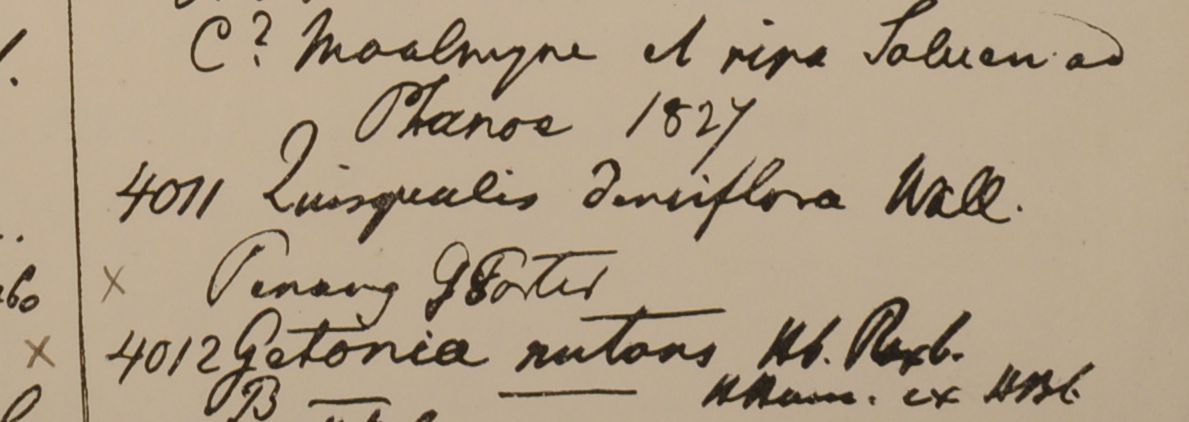 C? Moalmyne et ripa Saluen ad
Phanoe 1827
4011 Quisqualis densiflora Wall.
x Penang G Porter
x 4012 Getonia nutans Hb. Roxb.
B HHam. ex HBl.